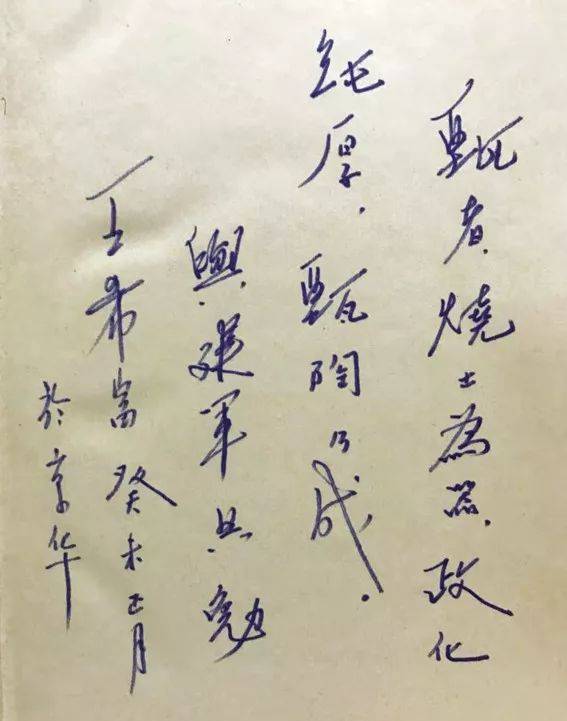 甄者，燒土為器，政化
純厚，甄陶乃成。
與建軍共勉
王希富 癸未正月
於京华